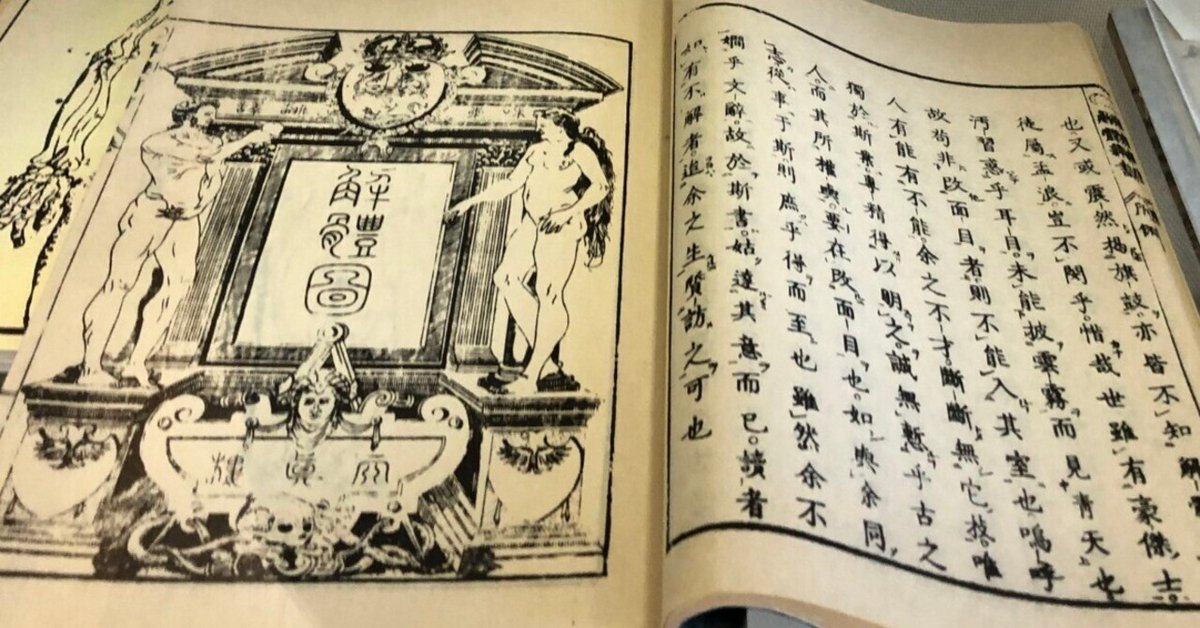 也又或震然揭旗鼓。亦皆不知解
徒屬孟浪。豈不閔乎。惜哉世雖有豪傑士。
汚習惑乎耳目。未能披雲霧而見青天也
故苟非改面目者則不能入其室也嗚呼
人有能有不能。余之不才。斷斷無它技唯
獨於斯業專精得以明之。誠無慙乎古之
人而其所權輿。要在改面目也。如與余同
志。從事于斯則庶乎得而至也雖然余不
嫺乎文辭。故於斯書。姑達其意而已。讀者
如有不解者追余之生贒訪之可也
解體圖
天眞樓